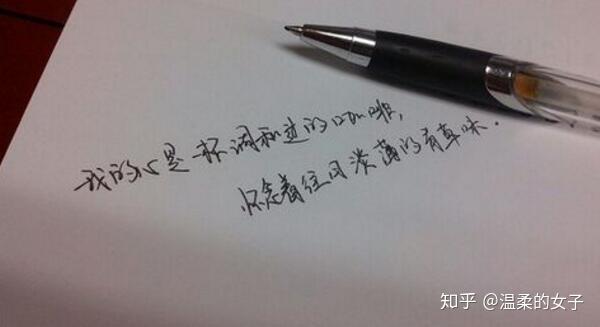 我的心是一杯调和过的咖啡，
怀念着往日淡薄的有真味。
知乎 @温柔的女子